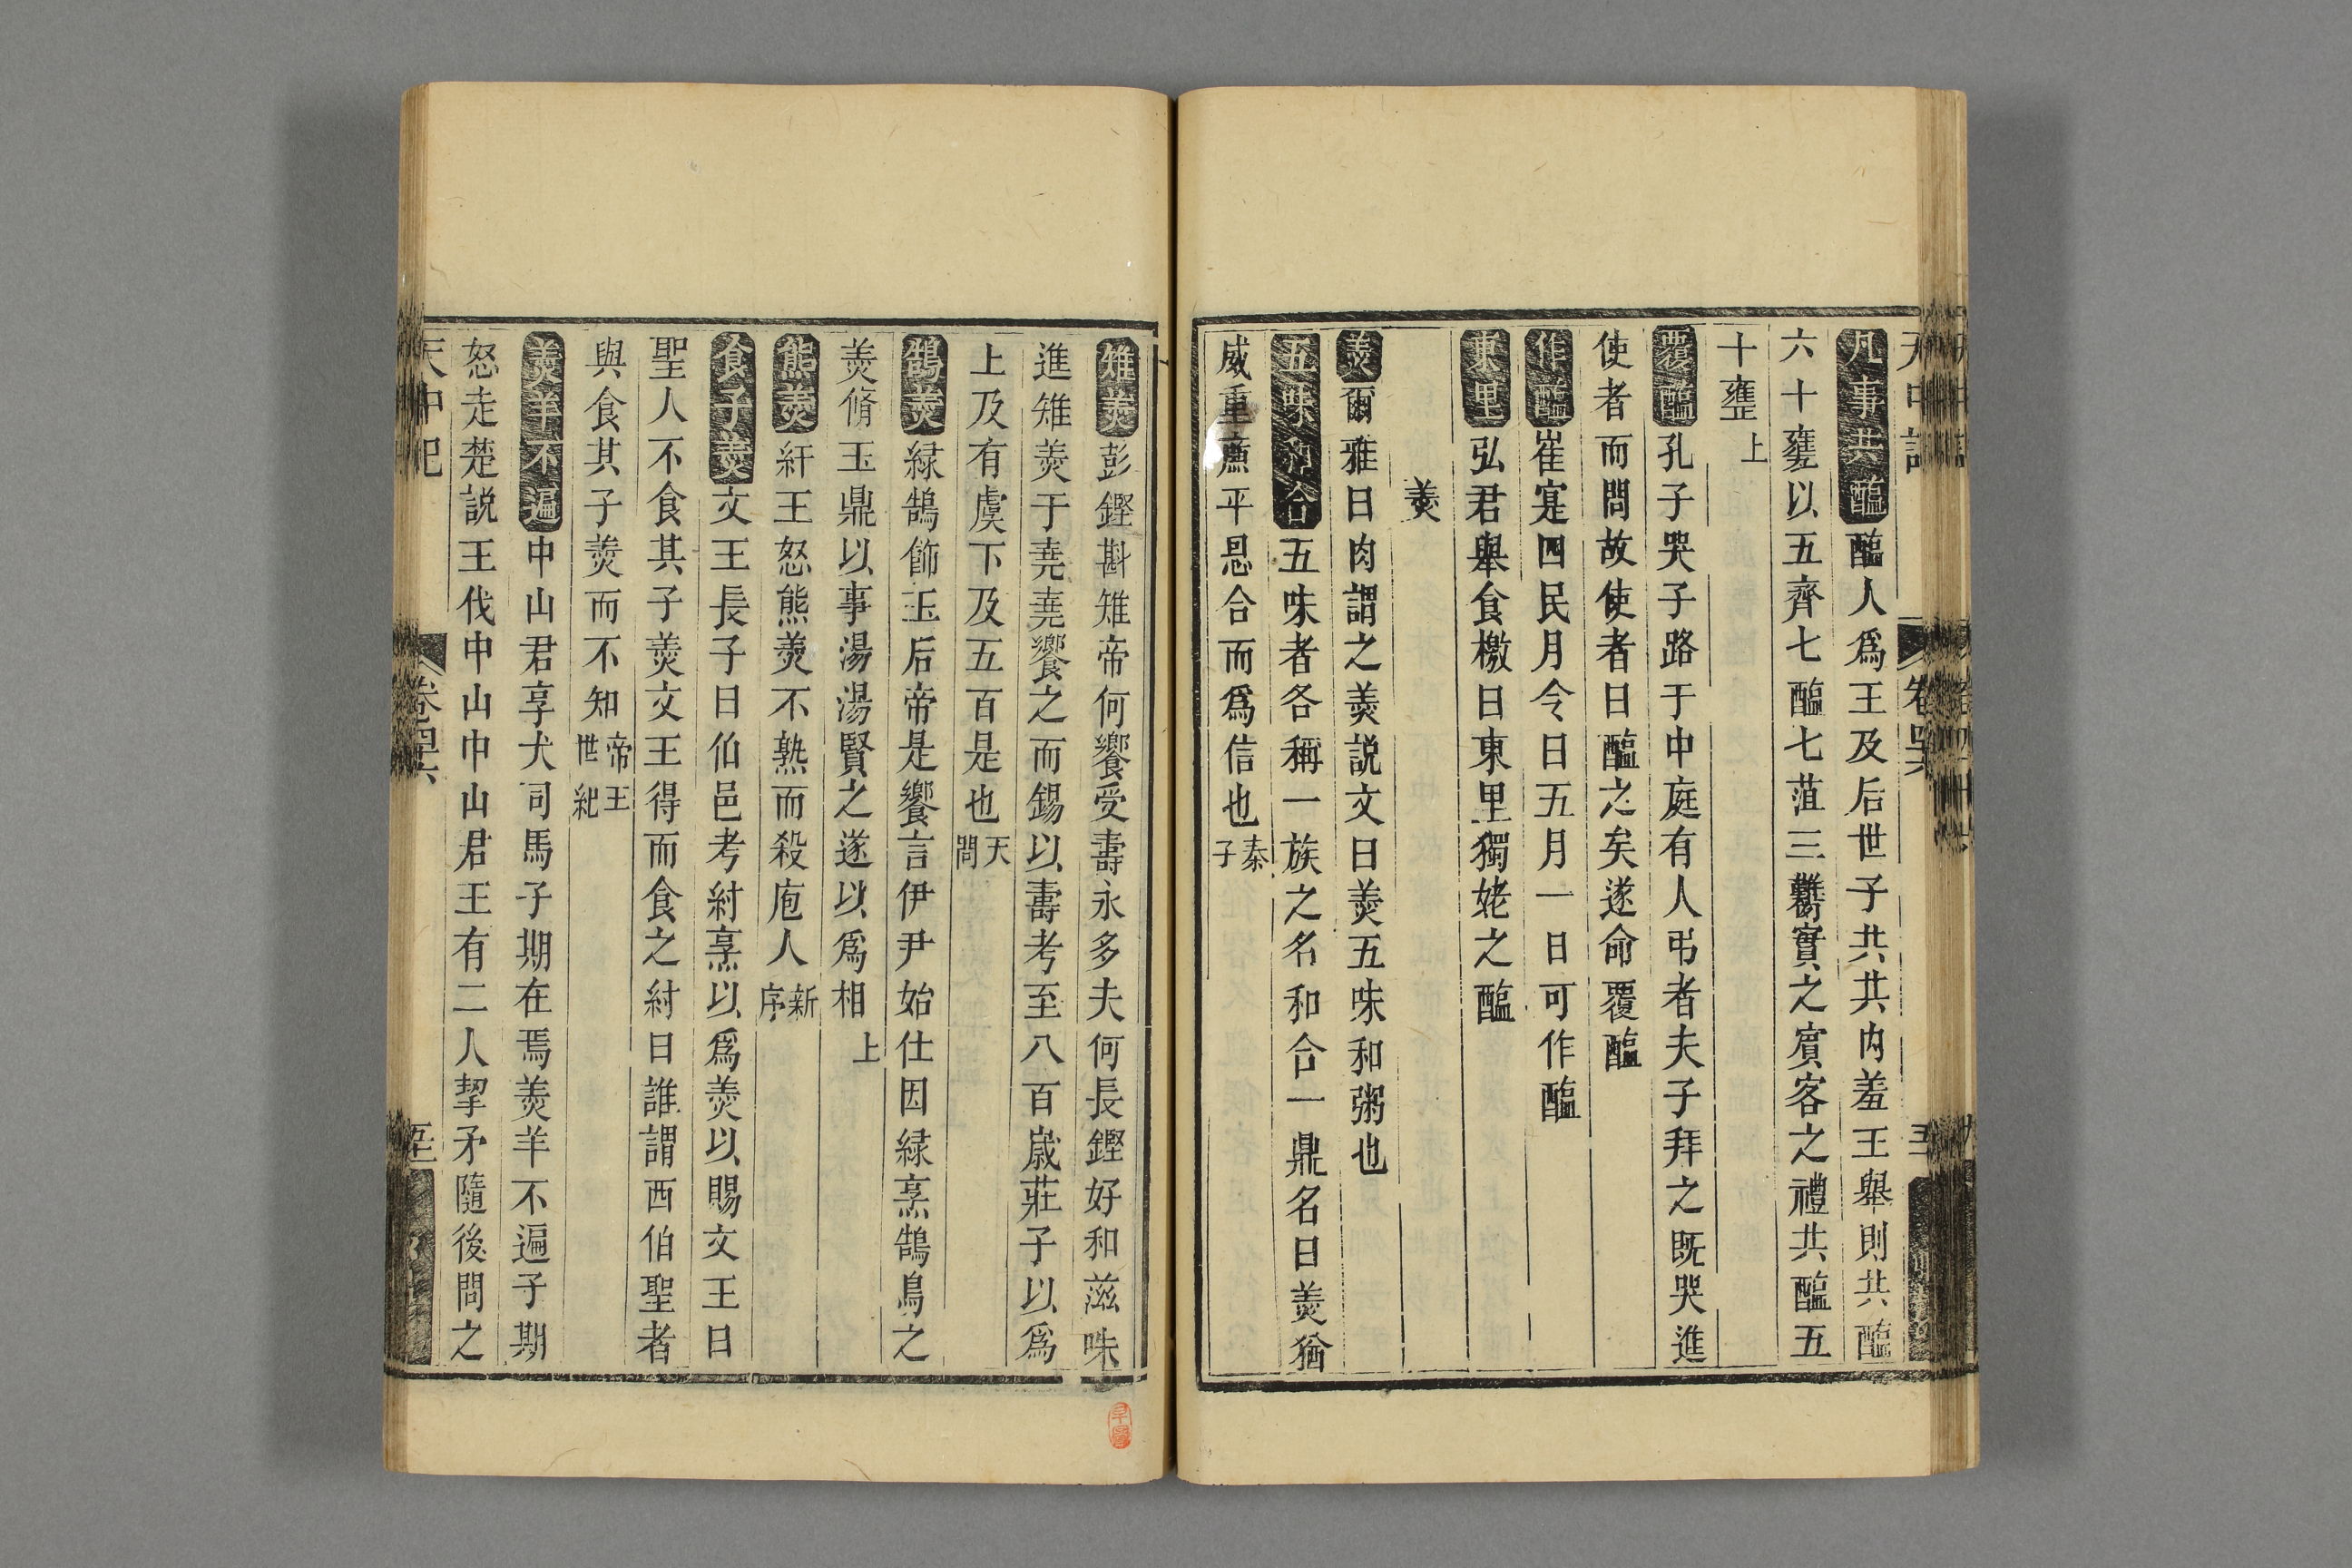 凡事共醢醢人爲王及后世子共其內羞王舉則共醢
六十罋以五齊七醢七菹三臡實之賓客之禮共醢五
十罋上
覆醢孔子哭子路于中庭有人弔者夫子拜之旣哭進
使者而問故使者曰醢之矣遂命覆醢
作醢崔寔四民月令曰五月一日可作醢
東里弘君舉食檄曰東里獨姥之醢
羹
羹爾雅曰肉謂之羹說文曰羹五味和粥也
五味和合五味者各稱一族之名和合一鼎名曰羹猶
威重廉平恩合而爲信也秦子
雉羹彭鏗斟雉帝何饗受壽永多夫何長鏗好和滋味
進雉羹于堯堯饗之而錫以壽考至八百歲莊子以爲
上及有虞下及五百是也天問
鵠羹緑鵠飾玉后帝是饗言伊尹始仕因緑烹鵠鳥之
羹脩玉鼎以事湯湯賢之遂以爲相上
熊羹紂王怒熊羹不熟而殺庖人新序
食子羹文王長子曰伯邑考紂烹以爲羹以賜文王曰
聖人不食其子羹文王得而食之紂曰誰謂西伯聖者
與食其子羹而不知帝王世紀
羹羊不遍中山君享犬司馬子期在焉羹羊不遍子期
怒走楚説王伐中山中山君王有二人挈矛隨後問之
天中記
卷四六